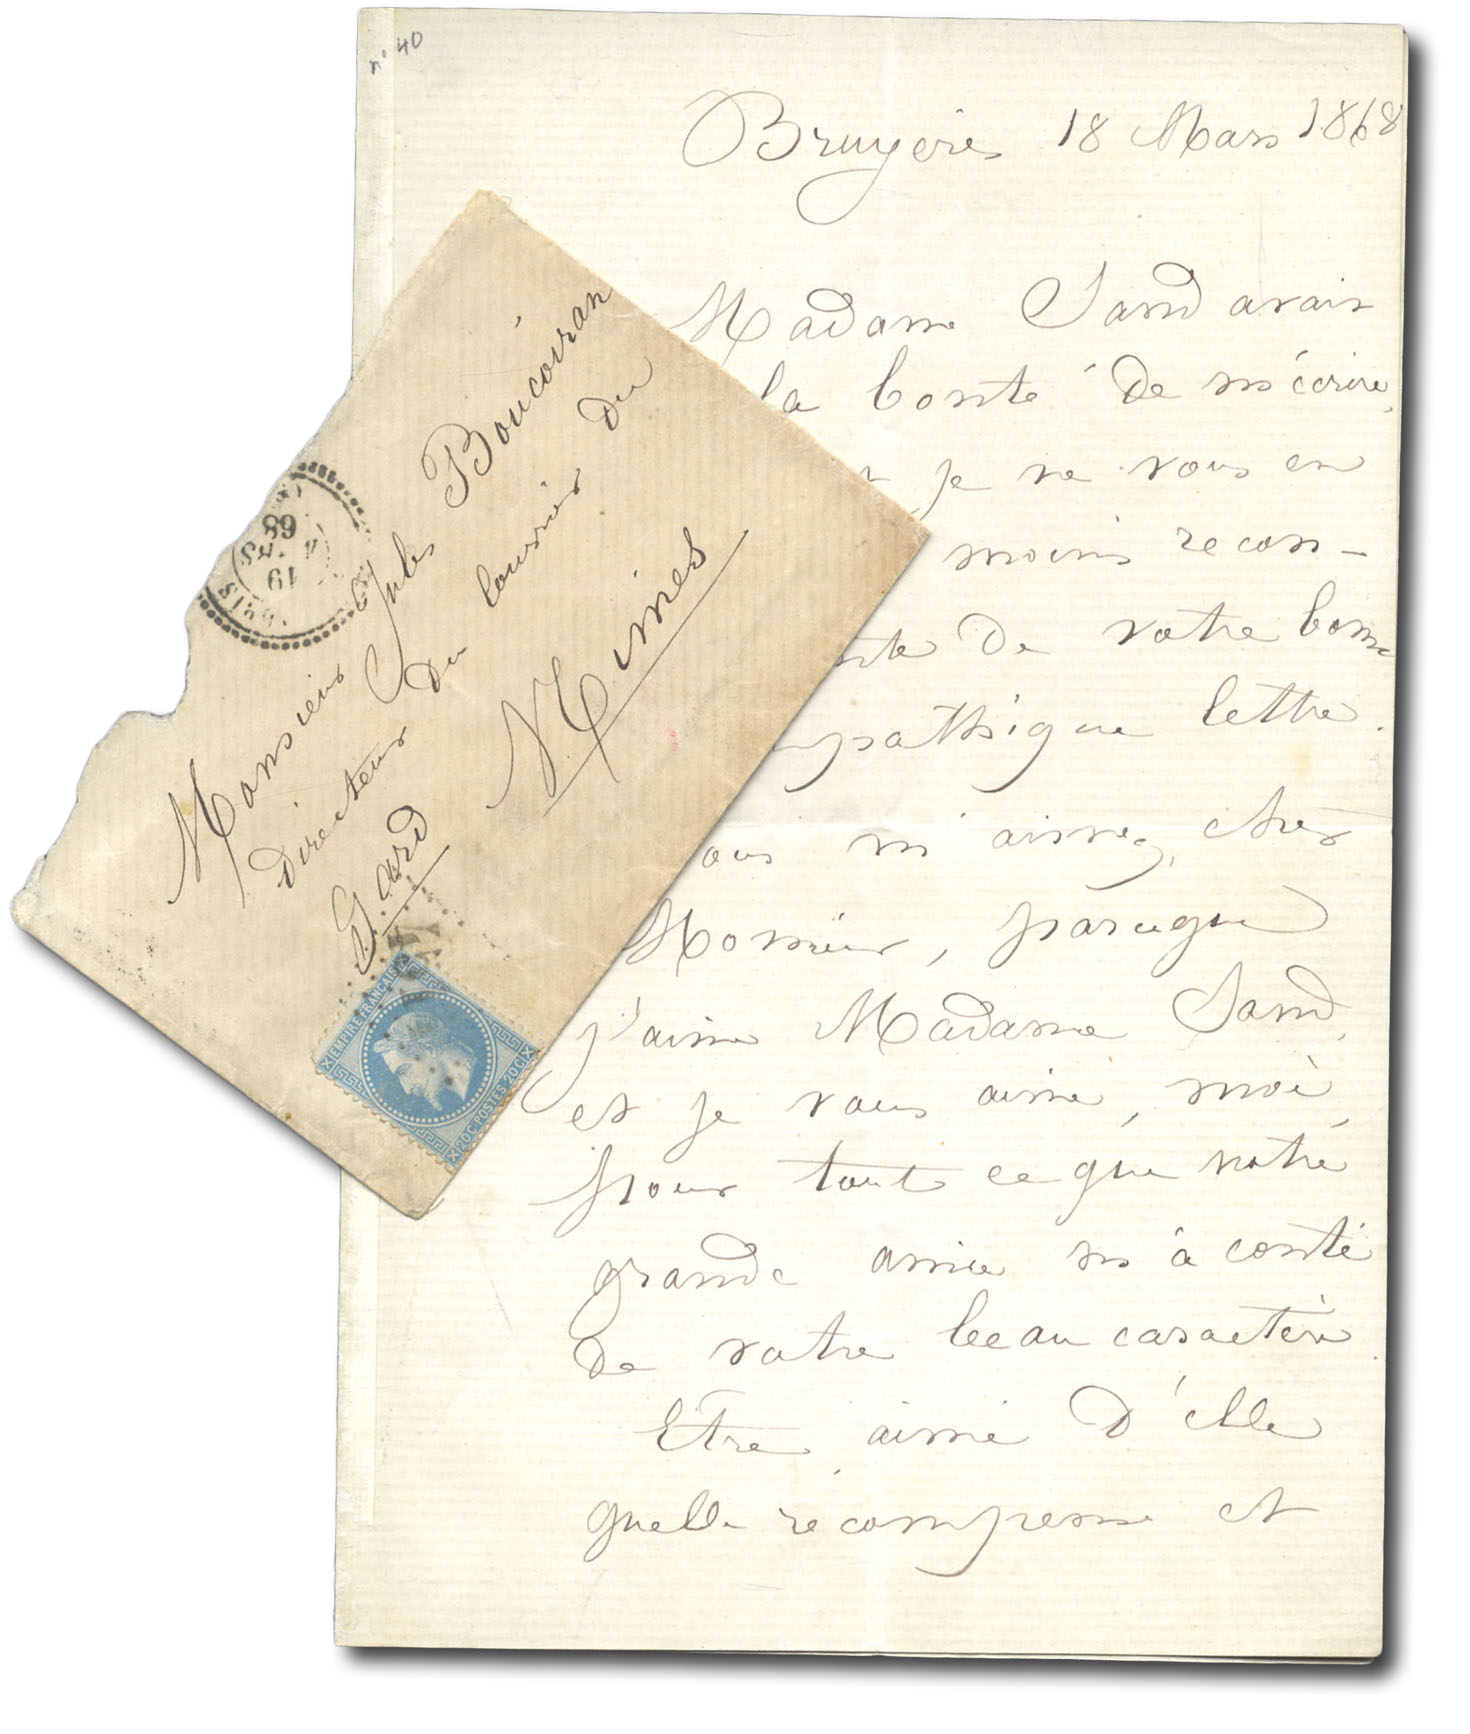 n° 40
Bruyères 18 Mars 1868
Madame Sand avait
la bonté de m'écrire,
je ne vous en
moins recon-
de votre bonne
mpathique lettre.
ous m'aimez, cher
Monsieur, parceque
j'aime Madame Sand,
et je vous aime, moi,
pour tout ce que notre
grande amie m'a conté
de votre beau caractère.
Etre aimé d'elle
quelle récompense et
Monsieur Jules Boucoiran
Directeur du Courrier du
Gard
Nimes
19
68
EMPIRE FRANÇAIS
20C POSTES 20C